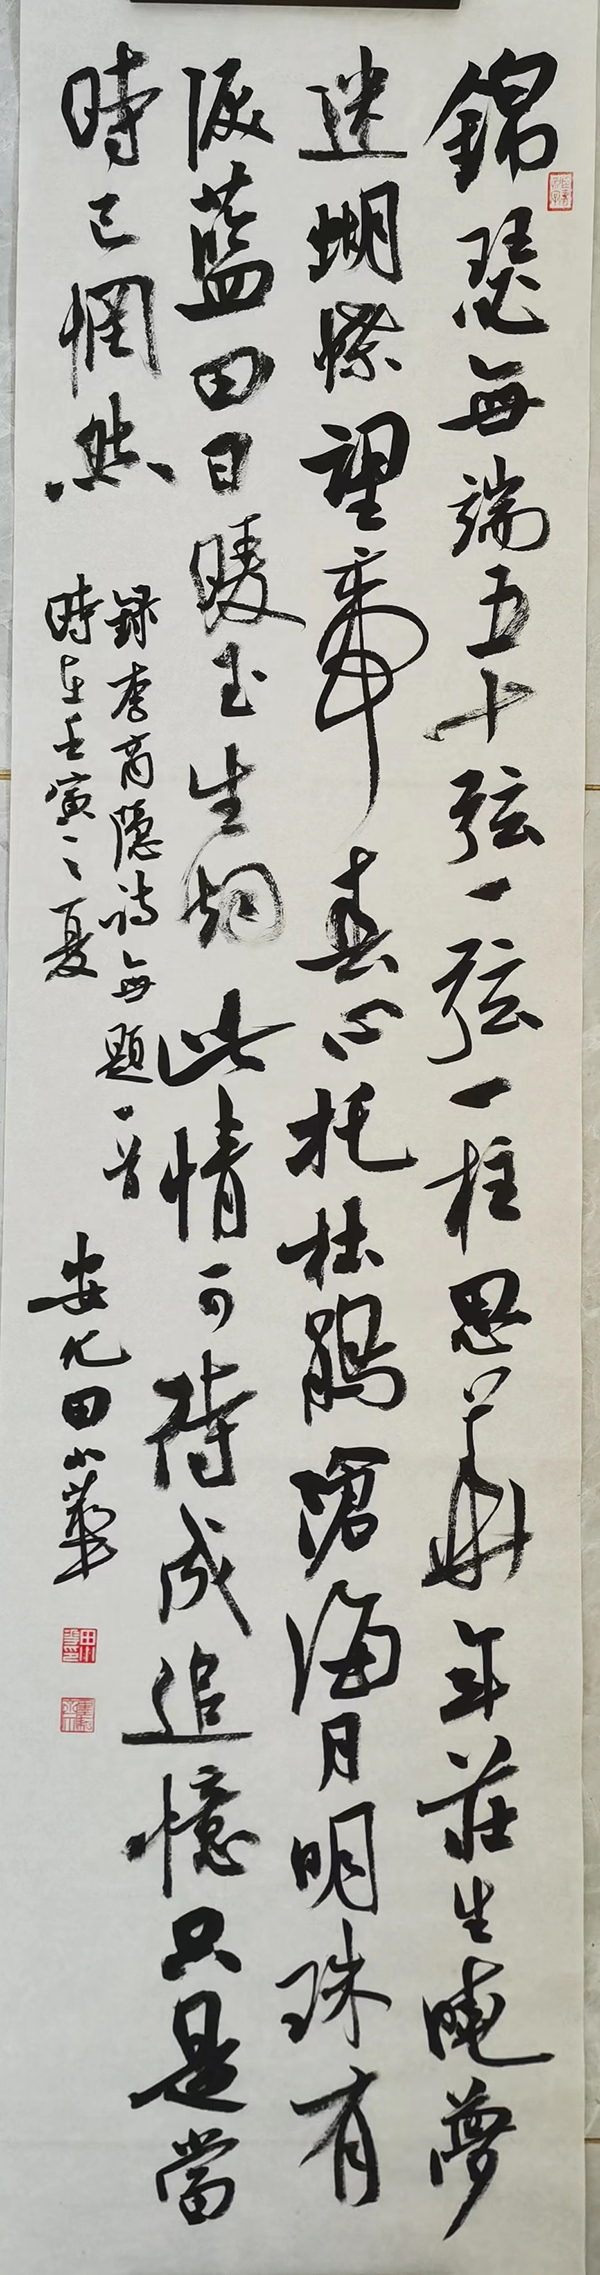 錦瑟無端五十弦一弦一柱思華年莊生曉夢
迷蝴蝶望帝春心托杜鵑滄海月明珠有
淚藍田日暖玉生烟此情可待成追憶只是當
時已惘然
録李商隱詩無題一首
時在壬寅之夏
安化田小華